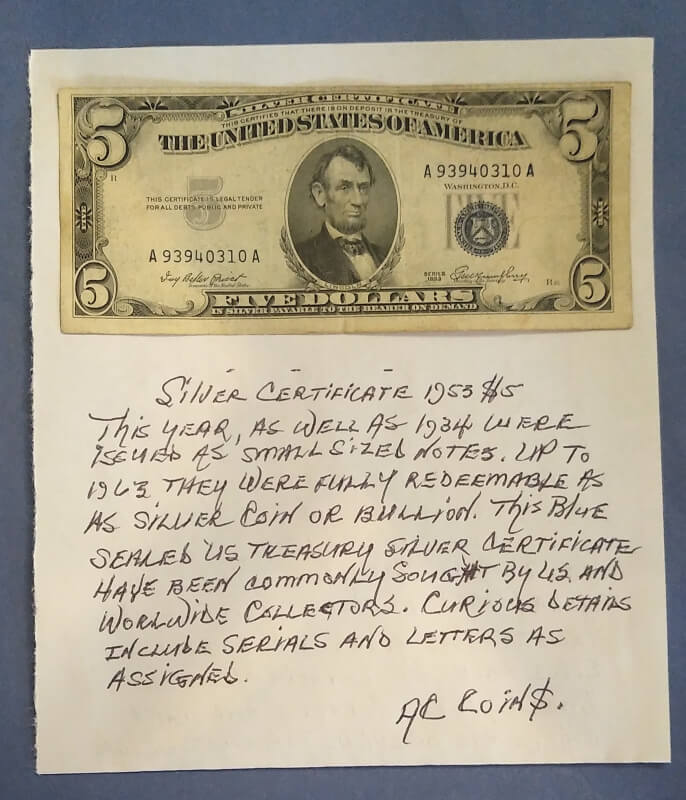 SILVER CERTIFICATE
THIS CERTIFIES THAT THERE IS ON DEPOSIT IN THE TREASURY OF
THE UNITED STATES OF AMERICA
5
5
R
A 93940310 A
WASHINGTON, D.C.
THIS CERTIFICATE IS LEGAL TENDER
FOR ALL DEBTS, PUBLIC AND PRIVATE
5
FIVE
A 93940310 A
Ivy Baker Priest
SERIES
1953
5
5
LINCOLN
FIVE DOLLARS
IN SILVER PAYABLE TO THE BEARER ON DEMAND
SILVER CERTIFICATE 1953 $5
THIS YEAR, AS WELL AS 1934 WERE
ISSUED AS SMALL SIZED NOTES. UP TO
1963 THEY WERE FULLY REDEEMABLE AS
AS SILVER COIN OR BULLION. THIS BLUE
SEALED US TREASURY SILVER CERTIFICATE
HAVE BEEN COMMONLY SOUGHT BY US AND
WORLWIDE COLLECTORS. CURIOUS DETAILS
INCLUDE SERIALS AND LETTERS AS
ASSIGNED.
AC COIN$.